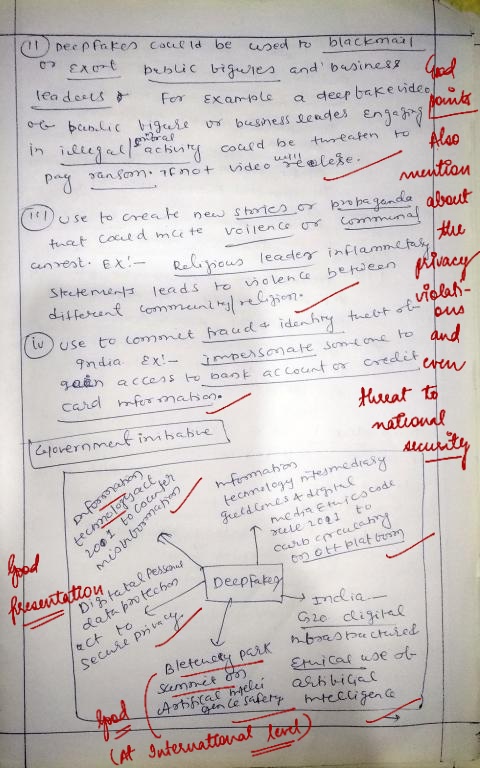 (ii) Deepfakes could be used to blackmail
or Exort public bigures and business
leaders For Example a deepfake video
ob public bigure or business leades Engaging
in illegal/imoral activity could be threaten to
pay ransom. If not video will relese.
(iii) use to create new stories or propaganda
that could incite voilence or communal
unrest. EX:- Religious leader inflammetary
statements leads to violence between
different community/religion.
(iv) use to commet fraud & identity theft of
India. EX:- impersonate someone to
gain access to bank account or credit
card information.
Good
points
Also
mention
about
the
privacy
violati-
ons
and
even
threat to
national
security
Government initiative
Information
technology act
to counter
misinformation
Information
technology intermediary
guidelines & digital
media Ethics code
rule 2021 to
carb circulating
on OTT platform
Deepfakes
Digital personal
data protection
act to
secure privacy
India -
G20 digital
infrastructured
Ethical use ob
artibicial
intelligence
Bletchely park
summit on
Artifical inteli
gence safety
Good
presentation
Good
(At International level)